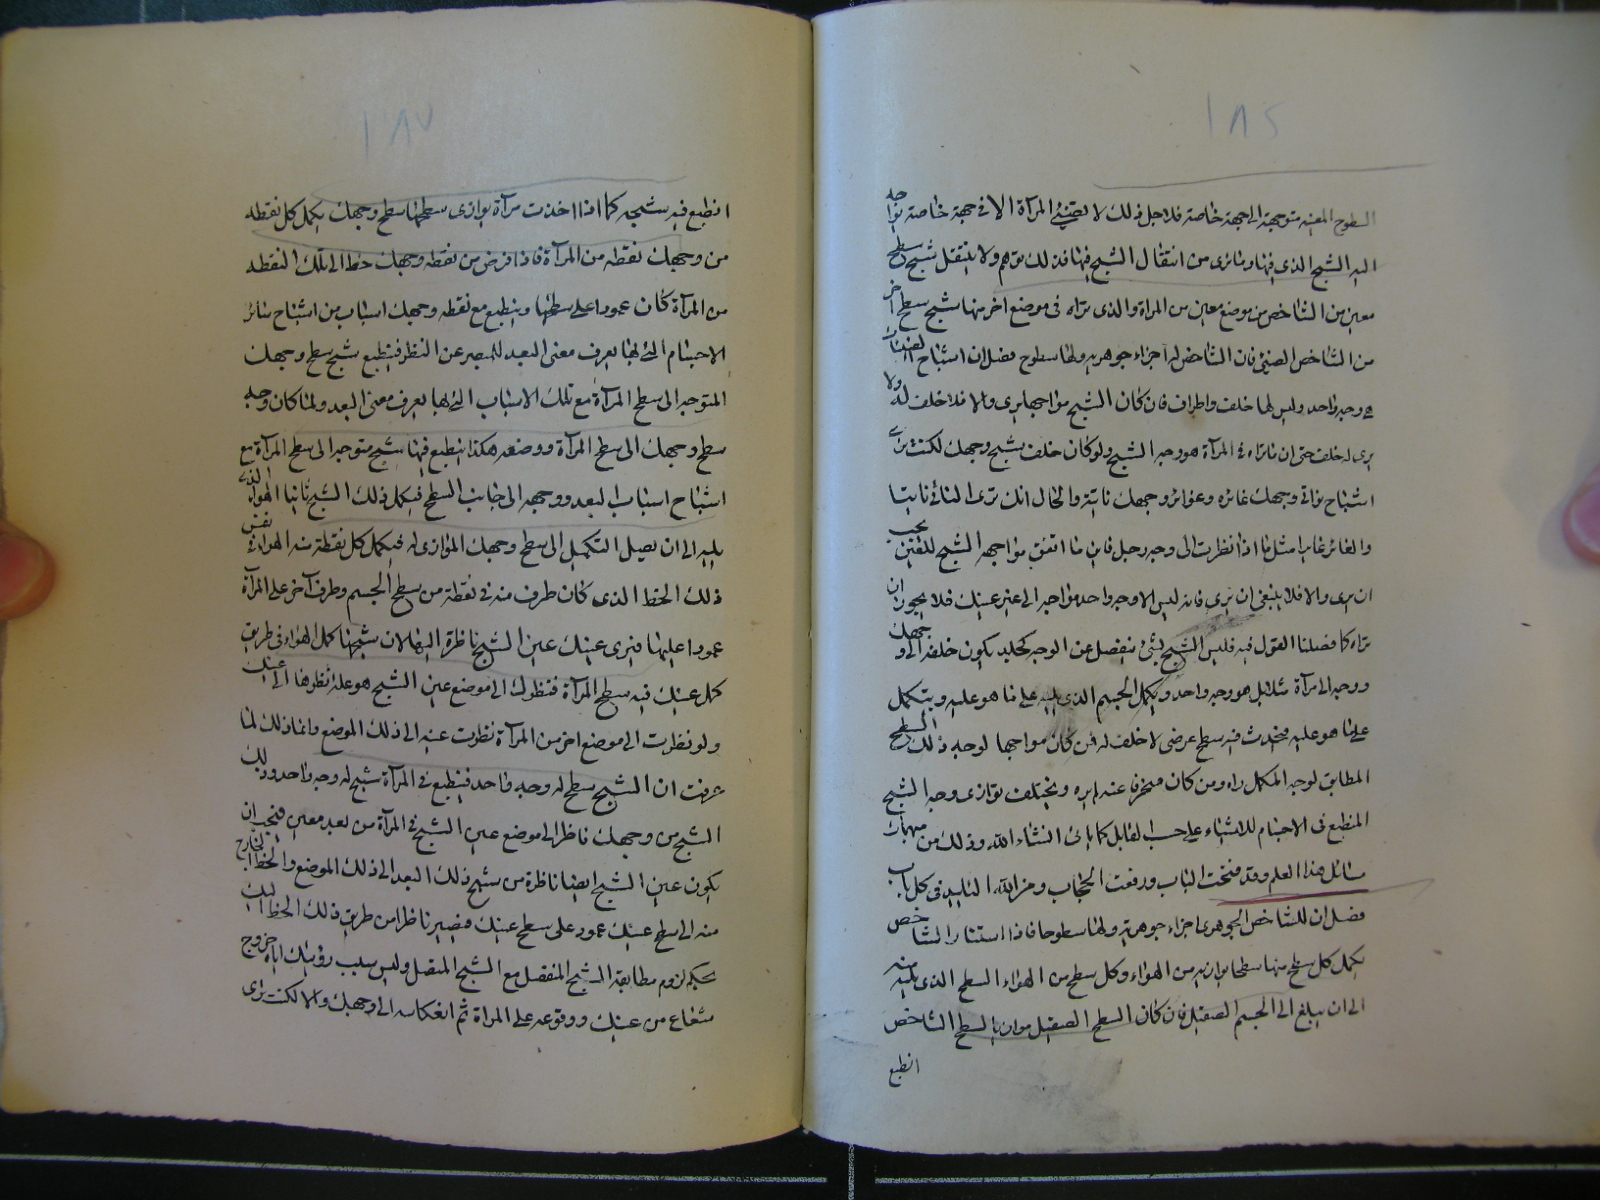 ١٨٤
السطوح المعينه متوجهة الى جهة خاصة فلاجل ذلك لا يقتضى المرآة الا فى جهة خاصة تواجه
اليه الشبح الذى فيها وما ترى من انتقال الشبح فيها فذلك توهم ولا ينتقل شبح سطح
معين من الشاخص من موضع معين من المراة والذى تراه فى موضع اخر منها شبح سطح اخر
من الشاخص فان الشاخص له اجزاء جوهريه ولها سطوح فصل ان اشباح
وجه واحد وليس لها خلف واطراف فان كان الشبح مواجها يرى والا فلا خلف له ولا
يرى له خلف حتى ان ما تراه فى المرآة هو وجه الشبح ولو كان خلف شبح وجهك لكنت ترى
اشباح نواتى وجهك غائره وغوائر وجهك ناتئة والحال انك ترى الناتئ ناتئا
والغائر غايرا مثل ما اذا نظرت الى وجه رجل فاين ما اتفق مواجهه الشبح للعين يجب
ان يرى والا فلا ينبغى ان يرى فانه ليس الا وجه واحد مواجه الى غير عينك فلا يجوز ان
تراه كما فصلنا القول فيه فليس الشبح بشئ ينفصل عن الوجه كجلد يكون خلفه الى وجهك
ووجه الى مرآة مثلا بل هو وجه واحد ويكمل الجسم الذى يليه على ما هو عليه ويتكمل
على ما هو عليه فيحدث فيه سطح عرضى لا خلف له فمن كان مواجها لوجه ذلك السطح
المطابق لوجه المكمل راه ومن كان منحرفا عنه لم يره ويختلف توازى وجه الشبح
المنطبع فى الاجسام للاشياء على حسب تقابل كما ياتى انشاء الله وذلك من مهمات
مسائل هذا العلم وقد فتحت الباب ورفعت الحجاب ومن الله التاييد فى كل باب
فصل ان للشاخص الجوهرى اجزاء جوهرية ولها سطوحا فاذا استنار الشاخص
يكمل كل سطح منها سطحا يوازيه من الهواء وكل سطح من الهواء السطح الذى يليه منه
الى ان يبلغ الى الجسم الصقيل فان كان السطح الصقيل موازيا لسطح الشاخص
انطبع
١٨٧
انطبع فيه شبحه كما اذا اخذت مرآة يوازى سطحها سطح وجهك يكمل كل نقطه
من وجهك نقطه من المرآة فاذا فرض من نقطه وجهك خط الى تلك النقطه
من المرآة كان عمودا على سطحها وينطبع مع نقطه وجهك اسباب من اشباح سائر
الاجسام التى بها يعرف معنى البعد للمبصر عن النظر فينطبع شبح سطح وجهك
المتوجه الى سطح المرآة مع تلك الاسباب التى بها يعرف معنى البعد ولما كان وجه
سطح وجهك الى سطح المرآة ووضعه هكذا ينطبع فيها شبح متوجه الى سطح المرآة مع
اشباح اسباب البعد ووجهه الى جانب السطح فيكمل ذلك الشبح ثانيا الهواء الذى
يليه الى ان يصل التكميل الى سطح وجهك الموازى له فيكمل كل نقطة منه الهواء نفس
ذلك الخط الذى كان طرف منه فى نقطة من سطح الجسم وطرف آخر على المرآة
عمودا عليها فيرى عينك عين الشبح ناظرة اليها لان شبحها كمل الهواء فى طريق
كمل عينك فيه سطح المرآة فنظرك الى موضع عين الشبح هو علة نظرها الى عينك
ولو نظرت الى موضع اخر من المرآة نظرت عنه الى ذلك الموضع وانما ذلك لما
عرفت ان الشبح سطح له وجه واحد فينطبع فى المرآة شبح له وجه واحد وذلك
الشبح من وجهك ناظر الى موضع عين الشبح فى المرآة من بعد معين فيجب ان
يكون عين الشبح ايضا ناظرة من شبح ذلك البعد الى ذلك الموضع والخط الخارج
منه الى سطح عينك عمود على سطح عينك فيصير ناظرا من طريق ذلك الخط اليك
بحكم لزوم مطابقة الشبح المنفصل مع الشبح المتصل وليس سبب رؤيتك اياه خروج
شعاع من عينك ووقوعه على المراة ثم انعكاسه الى وجهك والا لكنت ترى